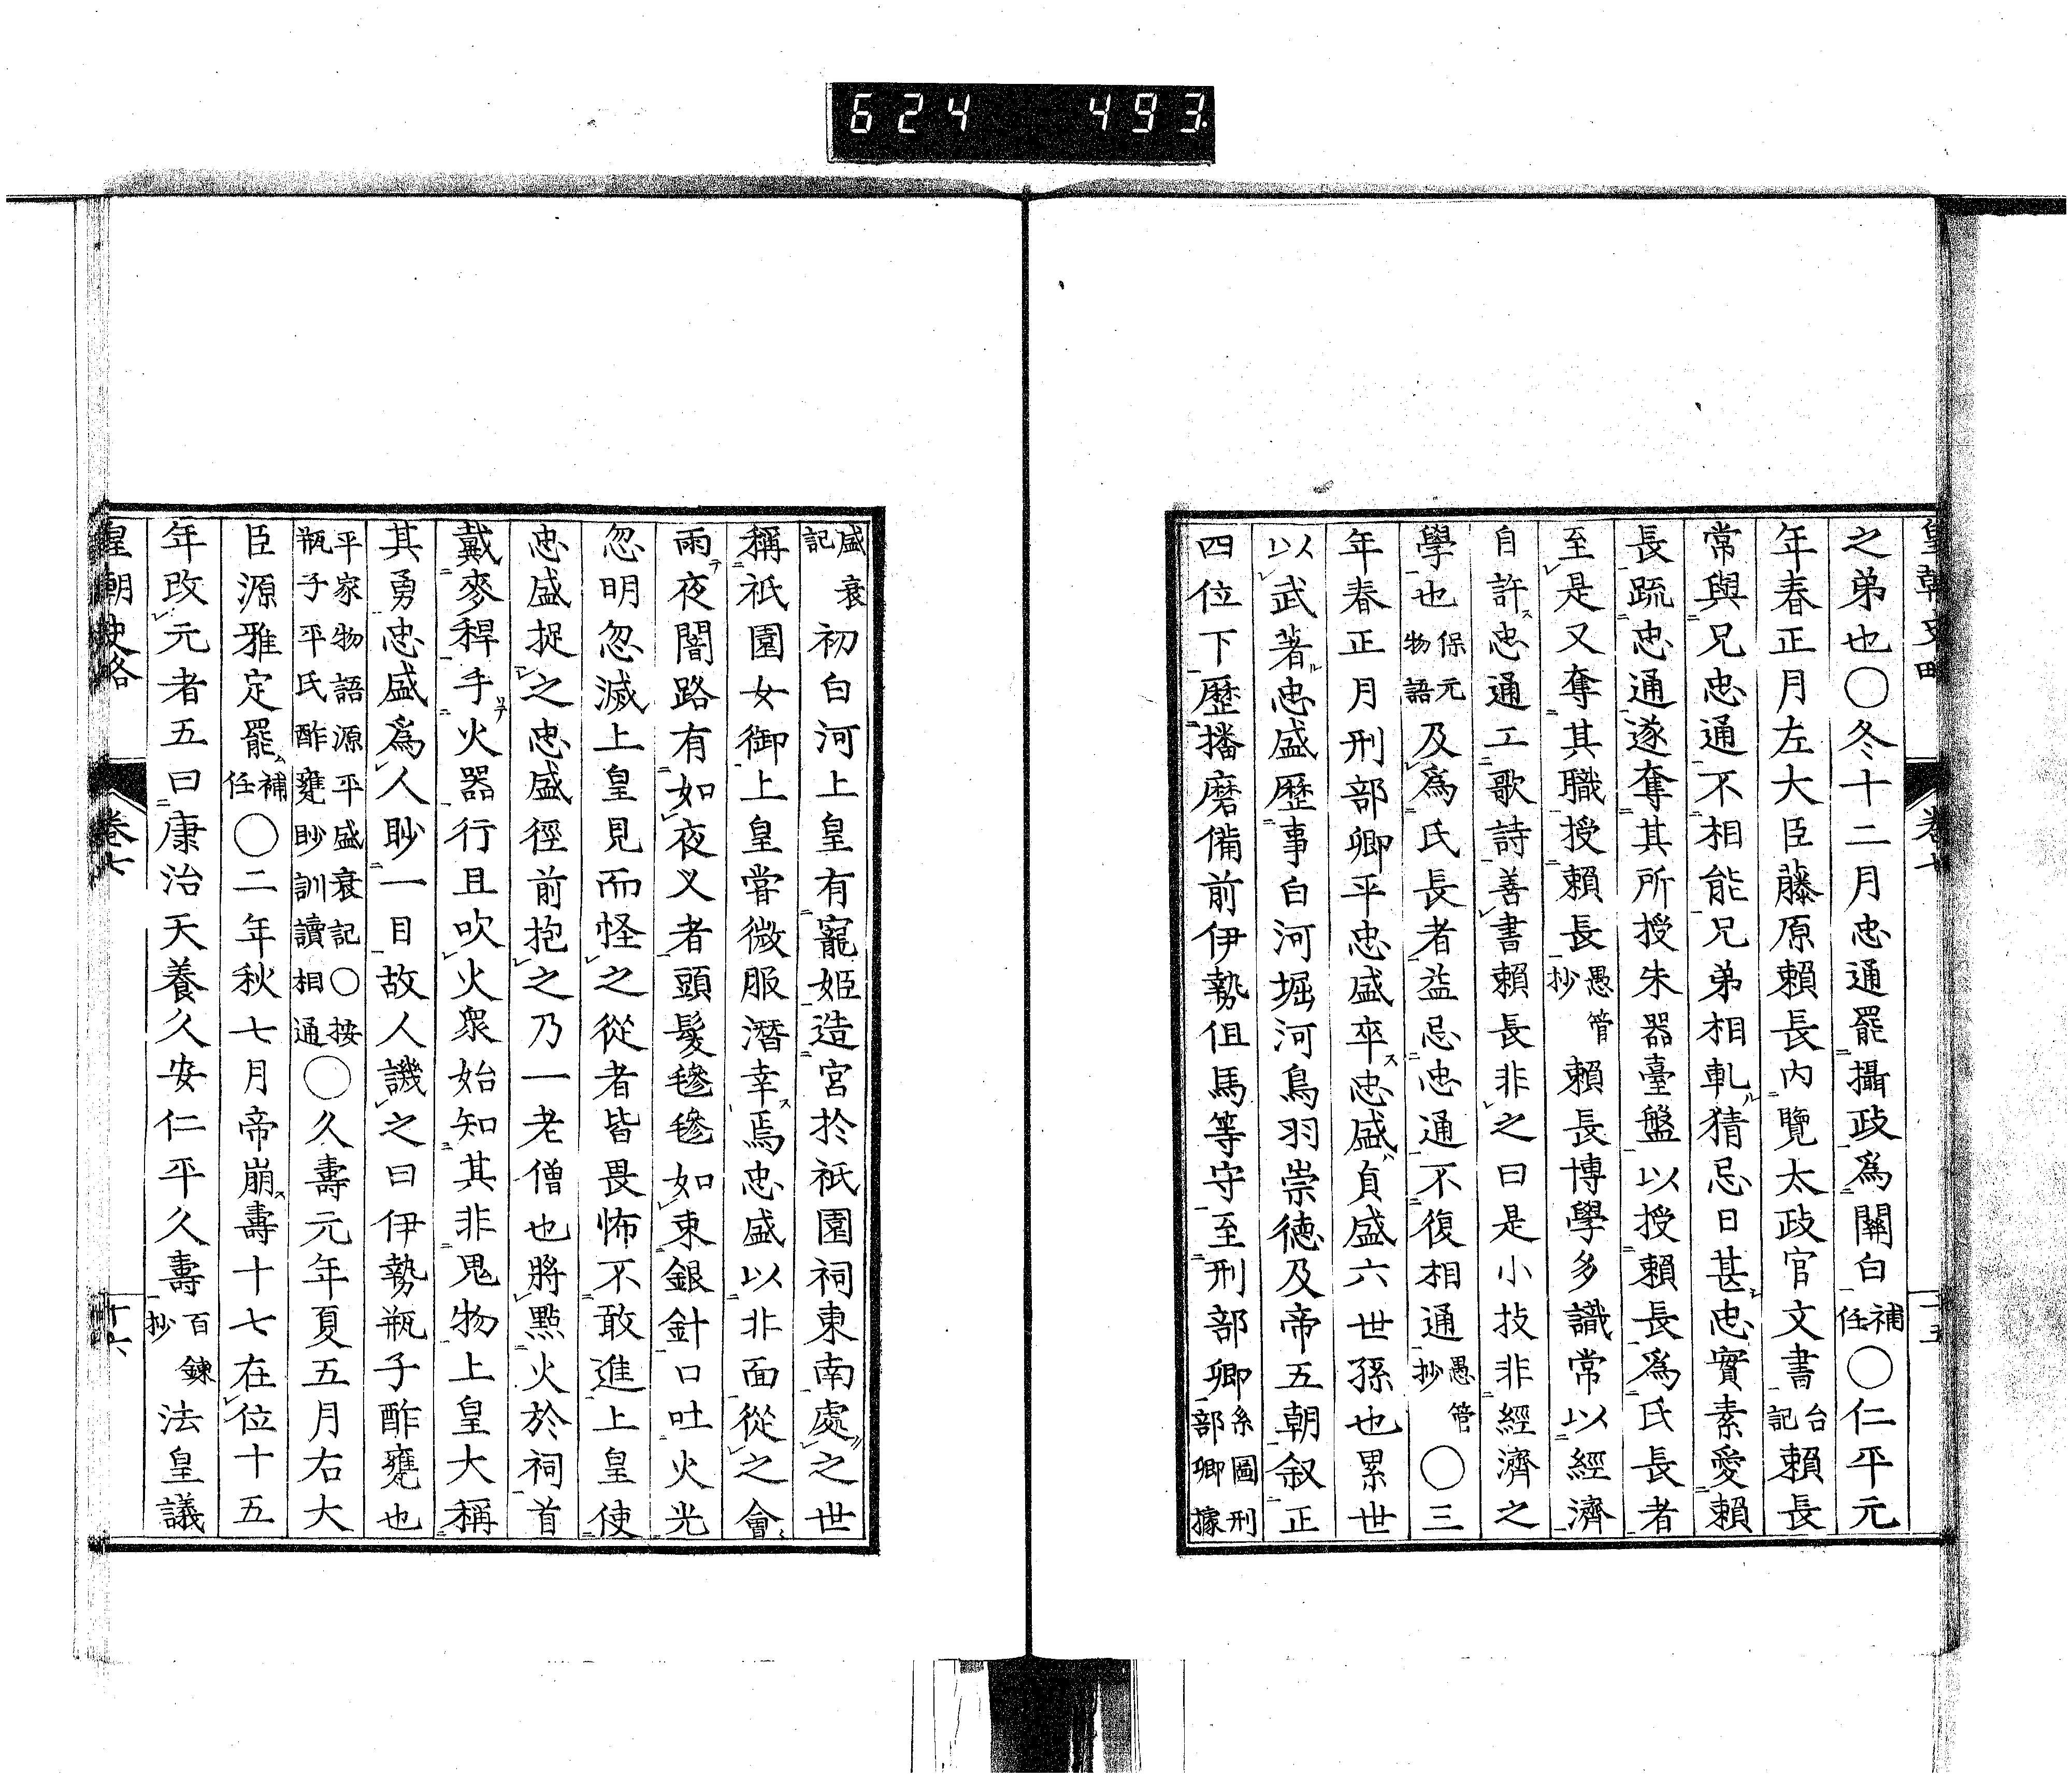 624 493.
皇朝史略 卷七 十五
之弟也○冬十二月忠通罷攝政爲關白補任○仁平元
年春正月左大臣藤原賴長内覽太政官文書台記賴長
常與兄忠通不相能兄弟相軋猜忌日甚忠實素愛賴
長疏忠通遂奪其所授朱器臺盤以授賴長爲氏長者
至是又奪其職授賴長愚管抄賴長博學多識常以經濟
自許忠通工歌詩善書賴長非之曰是小技非經濟之
學也保元物語及爲氏長者益忌忠通不復相通愚管抄○三
年春正月刑部卿平忠盛卒忠盛貞盛六世孫也累世
以武著忠盛歷事白河堀河鳥羽崇德及帝五朝叙正
四位下歷播磨備前伊勢但馬等守至刑部卿系圖刑部卿據
盛衰記初白河上皇有寵姬造宮於祇園祠東南處之世
稱祇園女御上皇嘗微服潛幸焉忠盛以非面從之會
雨夜闇路有如夜叉者頭髮毿毿如束銀針口吐火光
忽明忽滅上皇見而怪之從者皆畏怖不敢進上皇使
忠盛捉之忠盛徑前抱之乃一老僧也將點火於祠首
戴麥稈手火器行且吹火衆始知其非鬼物上皇大稱
其勇忠盛爲人眇一目故人譏之曰伊勢瓶子酢甕也
平家物語源平盛衰記○按瓶子平氏酢甕眇訓讀相通○久壽元年夏五月右大
臣源雅定罷補任○二年秋七月帝崩壽十七在位十五
年改元者五曰康治天養久安仁平久壽百鍊抄法皇議
皇朝史略 卷七 十六